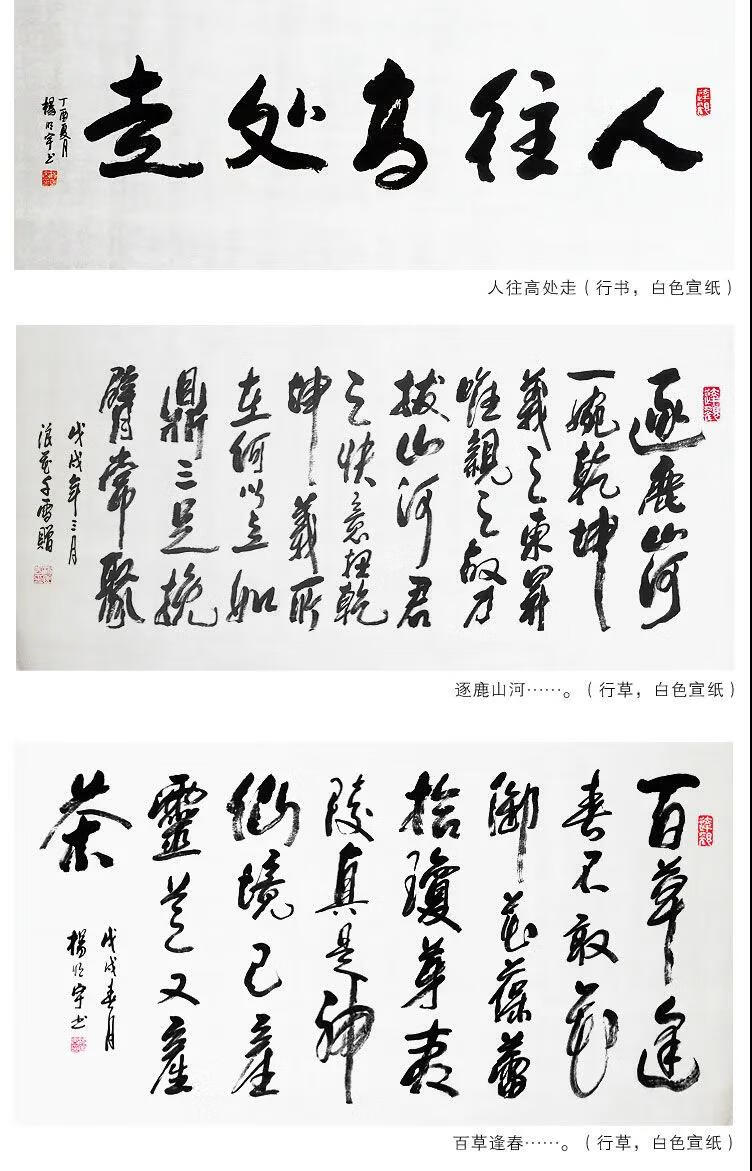 人往高处走
丁酉夏月
楊宇书
人往高处走（行书，白色宣纸）
逐鹿山河
一婉乾坤
義之東昇
唯親之故乃
拔山河君
之快意扭乾
坤義所
在何以立如
鼎三足挽
臂常聚
戊戌年三月
雪贈
逐鹿山河……。（行草，白色宣纸）
百草逢
春不敢花
御花葆蕾
拾瓊芽夷
陵真是神
仙境已產
靈芝又產
茶
戊戌春月
楊宇书
百草逢春……。（行草，白色宣纸）